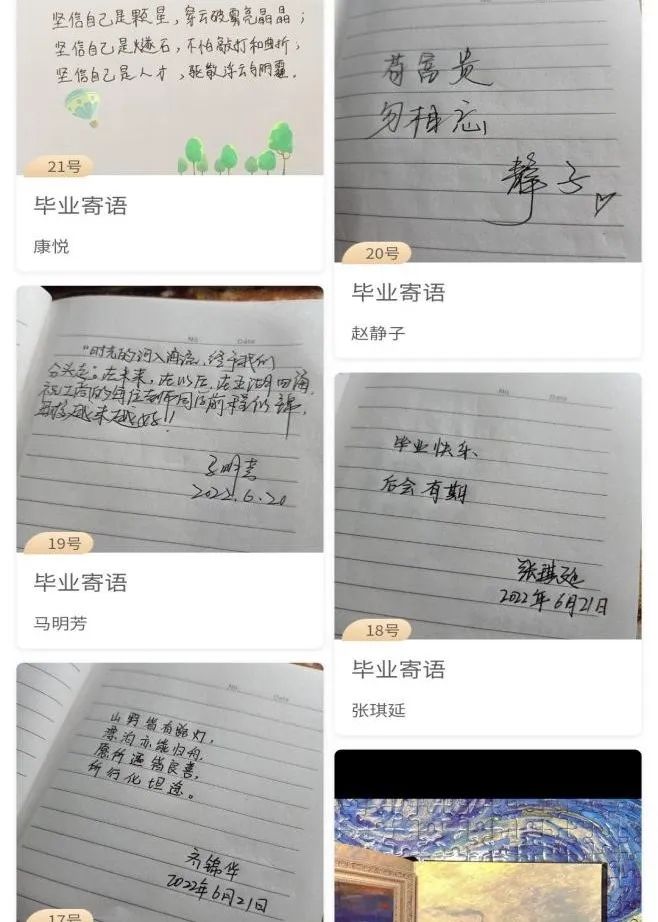 坚信自己是颗星，穿云破雾亮晶晶；
坚信自己是燧石，不怕敲打和曲折；
坚信自己是人才，驱散浮云与阴霾。
21号
毕业寄语
康悦
苟富贵
勿相忘
静子
20号
毕业寄语
赵静子
No
Date
"时光的河入海流，终于我们
分头走。在未来，在以后，在五湖四海，
祝工商的每位老师同学前程似锦，
越来越好！！
马明芳
2022.6.20
19号
毕业寄语
马明芳
No
Date
毕业快乐、
后会有期
张琪延
2022年6月21日
18号
毕业寄语
张琪延
No
Date
山野皆有路灯，
漂泊亦能归舟，
愿所遇皆良善，
所行化坦途。
齐锦华
2022年6月21日
17号